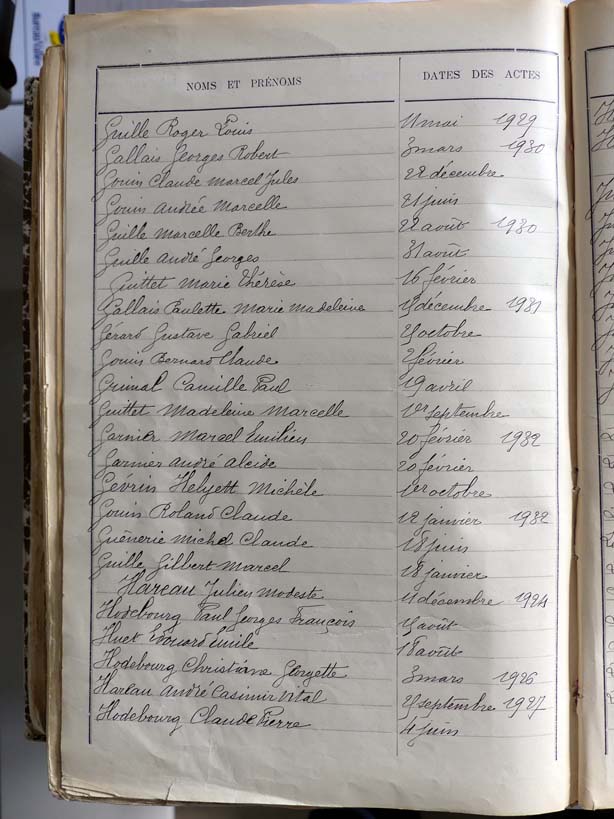 NOMS ET PRÉNOMS DATES DES ACTES
Guille Roger Louis 11 mai 1929
Gallais Georges Robert 3 mars 1930
Gouin Claude Marcel Jules 22 décembre
Gouin Andrée Marcelle 21 juin
Guille Marcelle Berthe 22 août 1930
Guille André Georges 31 août
Guittet Marie Thérèse 16 février
Gallais Paulette Marie Madeleine décembre 1931
Gérard Gustave Gabriel octobre
Gouin Bernard Claude février
Grimal Camille Paul 19 avril
Guittet Madeleine Marcelle 1er septembre
Garnier Marcel Emilien 20 février 1932
Garnier André Alcide 20 février
Gévrin Helyett Michèle 1er octobre
Gouin Roland Claude 12 janvier 1932
Guénerie Michel Claude 18 juin
Guille Gilbert Marcel 18 janvier
Hareau Julien Modeste 11 décembre 1924
Hodebourg Paul Georges François août
Huet Edouard Emile 18 août
Hodebourg Christiane Georgette 3 mars 1926
Hareau André Casimir Vital septembre 1927
Hodebourg Claude Pierre 4 juin